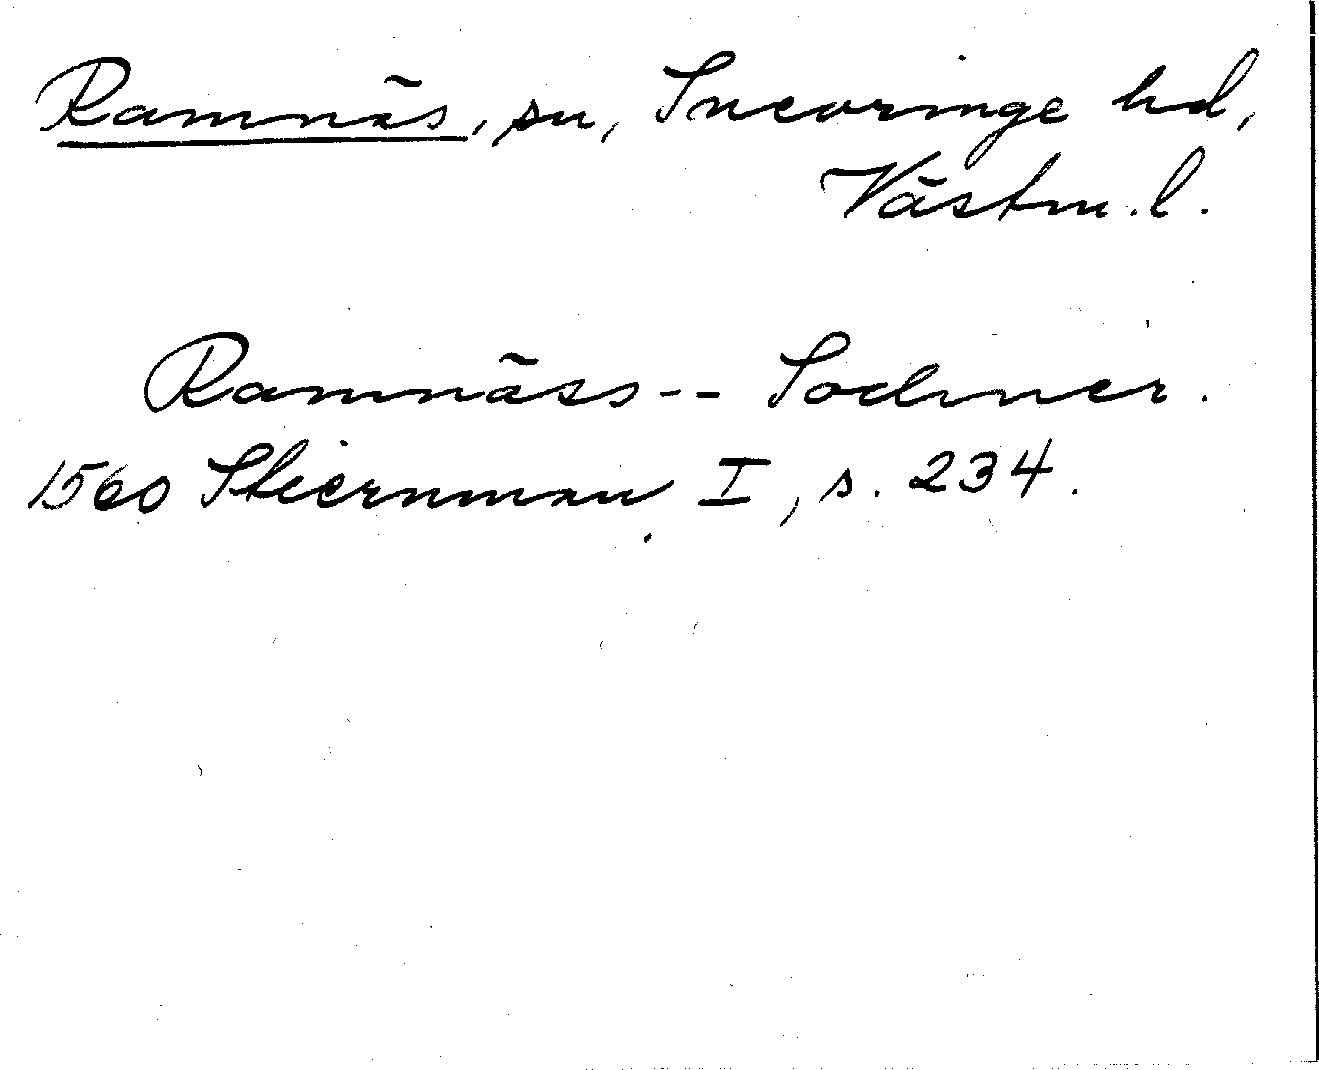 Ramnäs, sn, Snevringe hd,
Västm. l.
Ramnäss-- Sochner.
1560 Stiernman I, s. 234.